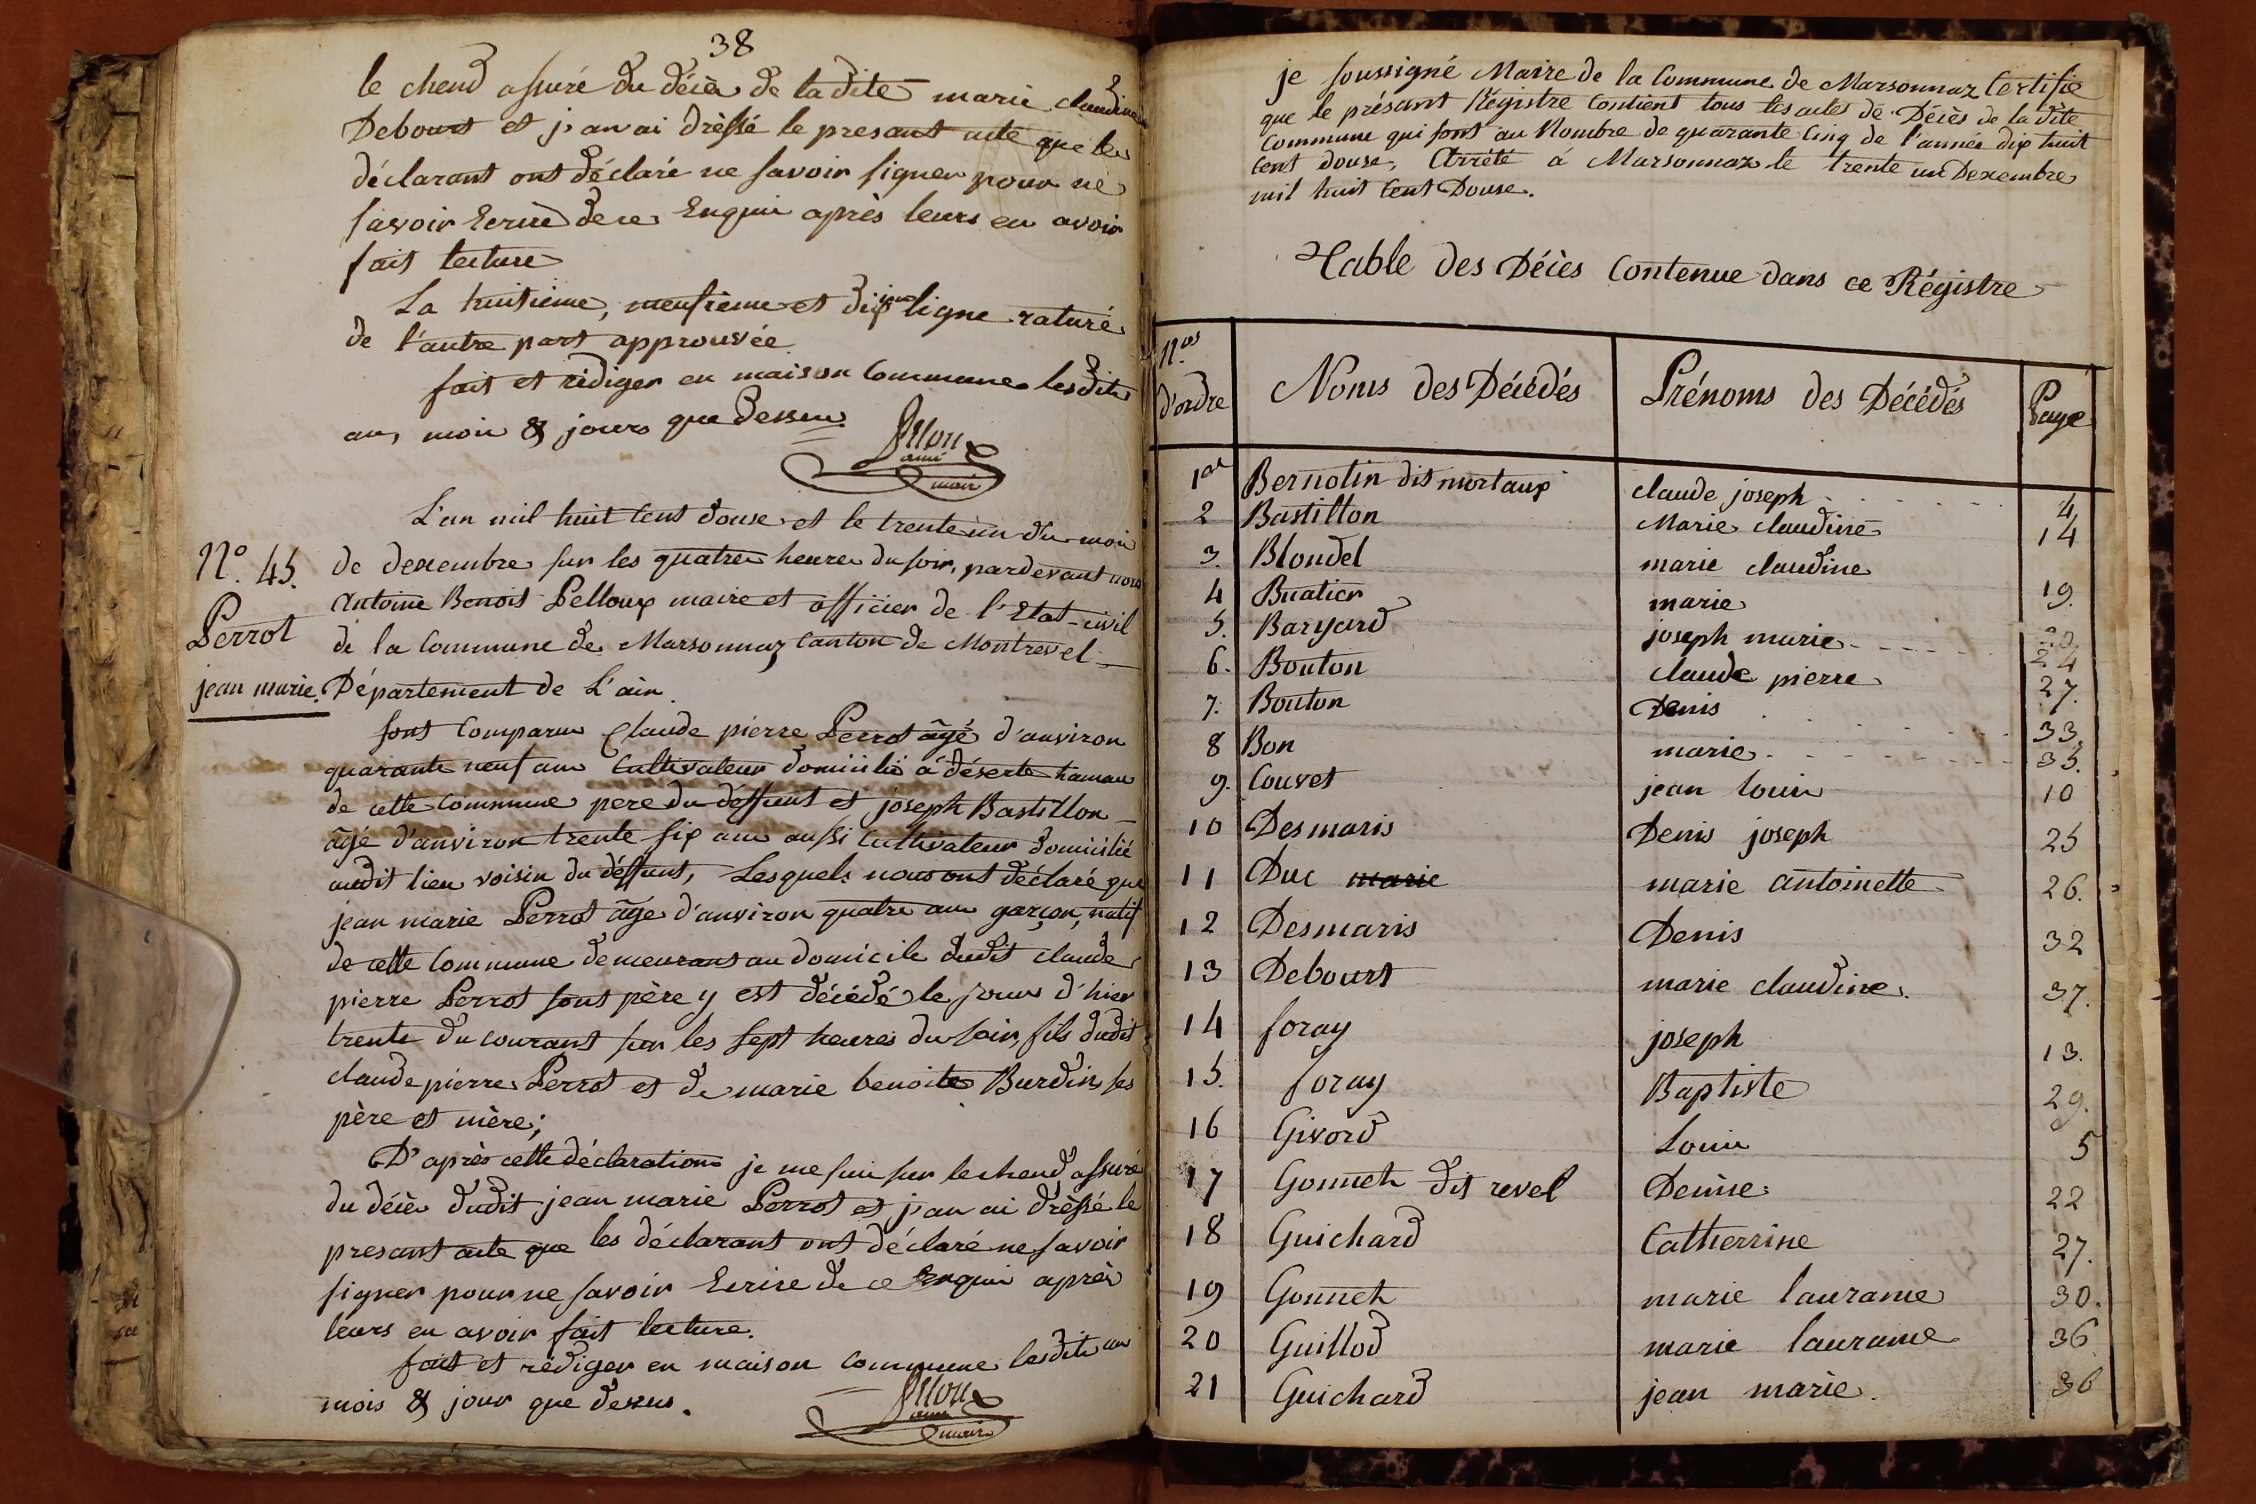 38
le chend assuré du décès de la dite marie claudine
Debourt et j'an ai drèssé le presant acte que les
déclarant ont déclaré ne savoir signer pour ne
savoir Ecrire de ce Enquis après leurs en avoir
fait lecture
La huitieme, neufieme et dixieme ligne raturé
de l'autre part approuvée
fait et rédiger en maison Commune lesdits
an, mois & jours que dessus
Pelloux
maire
L'an mil huit Cent douse et le trente un du mois
Nº. 45. de dexembre sur les quatre heures du soir, pardevant nous
Antoine Benoit Pelloux maire et officier de l'Etat-civil
Perrot de la Commune de Marsonnaz Canton de Montrevel
jean marie. Département de L'ain.
sont Comparus Claude pierre Perrot âgé d'anviron
quarante neuf ans Cultivateur domicilié à déserte hamau
de cette Commune pere du déffunt et joseph Bastillon
âgé d'anviron trente six ans aussi Cultivateur domicilié
audit lieu voisin du déffunt, Lesquels nous ont déclaré que
jean marie Perrot âgé d'anviron quatre ans garçon, natif
de cette Commune demeurant au domicile dudit claude
pierre Perrot sont père y est décédé le jour d'hier
trente du courant sur les sept heures du soir, fils dudit
claude pierre Perrot et de marie benoite Burdin ses
père et mère;
D'après cette déclaration je me suis sur le chend assuré
du décès dudit jean marie Perrot et j'an ai drèssé le
presant acte que les déclarant ont déclaré ne savoir
signer pour ne savoir Ecrire de ce Enquis après
leurs en avoir fait lecture.
fait et rédiger en maison Commune lesdits an
mois & jour que dessus.
Pelloux
maire
je soussigné Maire de la Commune de Marsonnaz Certifie
que le présant Régistre Contient tous les actes de Décès de la dite
Commune qui sont au Nombre de quarante Cinq de l'année dix huit
Cent douse, Arrété á Marsonnaz le trente un Dexembre
mil huit Cent Douse.
Table des Décès Contenue dans ce Régistre
N.os d'ordre Noms des Décédés Prénoms des Décédés Page
1er Bernotin dit mortaux claude joseph 4
2 Bastillon Marie claudine 14
3. Blondel marie claudine 19.
4 Buatier marie
5. Baryard joseph marie 24
6. Bouton claude pierre 27.
7. Bouton Denis 33.
8 Bon marie 35.
9. Couvet jean louis 10
10 Desmaris Denis joseph 25
11 Duc marie marie antoinette 26.
12 Desmaris Denis 32
13 Debourt marie claudine. 37.
14 foray joseph 13.
15. foray Baptiste 29.
16 Givord Louis 5
17 Gonneth dit revel Denise 22
18 Guichard Catherrine 27.
19 Gonneth marie lauranie 30.
20 Guillod marie lauranie 36
21 Guichard jean marie. 36